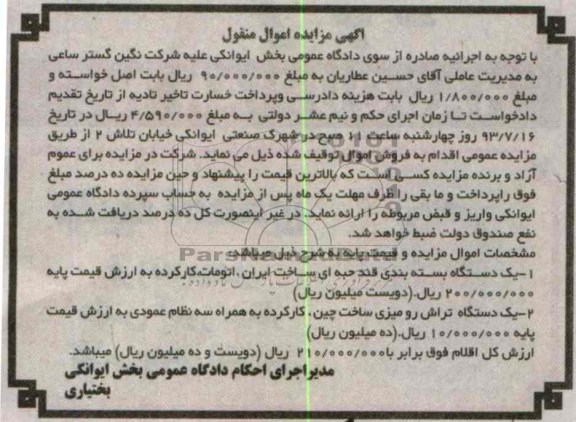 آگهی مزایده اموال منقول
با توجه به اجرائیه صادره از سوی دادگاه عمومی بخش ایوانکی علیه شرکت نگین گستر ساعی
به مدیریت عاملی آقای حسین عطاریان به مبلغ ۹۰/۰۰۰/۰۰۰ ریال بابت اصل خواسته و
مبلغ ۱/۸۰۰/۰۰۰ ریال بابت هزینه دادرسی وپرداخت خسارت تاخیر تادیه از تاریخ تقدیم
دادخواست تا زمان اجرای حکم و نیم عشر دولتی به مبلغ ۴/۵۹۰/۰۰۰ ریال در تاریخ
۹۳/۷/۱۶ روز چهارشنبه ساعت ۱۱ صبح در شهرک صنعتی ایوانکی خیابان تلاش ۲ از طریق
مزایده عمومی اقدام به فروش اموال توقیف شده ذیل می نماید. شرکت در مزایده برای عموم
آزاد و برنده مزایده کسی است که بالاترین قیمت را پیشنهاد و حین مزایده ده درصد مبلغ
فوق راپرداخت و ما بقی را ظرف مهلت یک ماه پس از مزایده به حساب سپرده دادگاه عمومی
ایوانکی واریز و قبض مربوطه را ارائه نماید. در غیر اینصورت کل ده درصد دریافت شده به
نفع صندوق دولت ضبط خواهد شد.
مشخصات اموال مزایده و قیمت پایه به شرح ذیل میباشد
۱-یک دستگاه بسته بندی قند حبه ای ساخت ایران .اتومات.کارکرده به ارزش قیمت پایه
۲۰۰/۰۰۰/۰۰۰ ریال.(دویست میلیون ریال)
۲-یک دستگاه تراش رو میزی ساخت چین. کارکرده به همراه سه نظام عمودی به ارزش قیمت
پایه ۱۰/۰۰۰/۰۰۰ ریال.(ده میلیون ریال)
ارزش کل اقلام فوق برابر با۲۱۰/۰۰۰/۰۰۰ ریال (دویست و ده میلیون ریال) میباشد.
مدیراجرای احکام دادگاه عمومی بخش ایوانکی
بختیاری